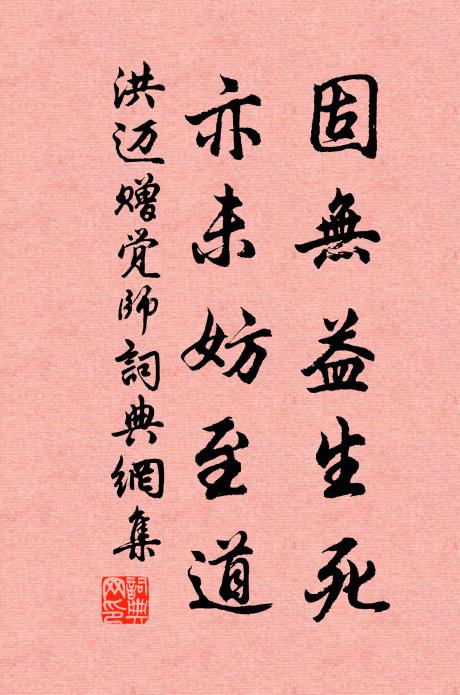 固無益生死
亦未妨至道
洪迈赠觉師詞典網集
詞典网印